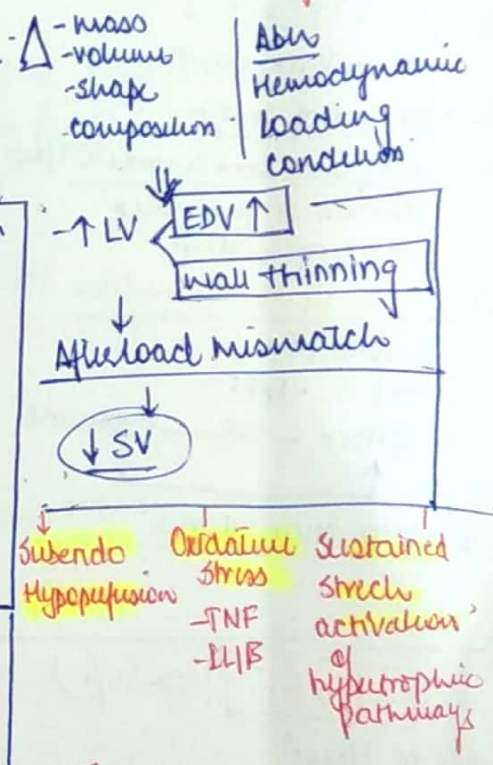 - Δ - mass
- volume
- shape
- composition
Abn
Hemodynamic
loading
condition
- ↑ LV
EDV ↑
wall thinning
↓ ↓
Afterload mismatch
↓
↓ SV
Subendo
Hypoperfusion
Oxidative
stress
- TNF
- IL1B
Sustained
strech
activation
of
hypertrophic
pathways